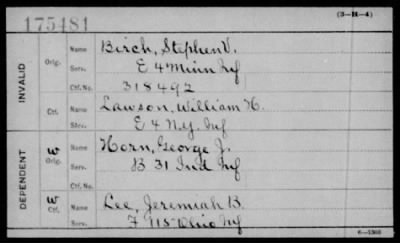 175481
(3-H-4)
INVALID
Orig.
Name Birch, Stephen V.
Serv. E 4 Minn Inf
Ctf. No. 318492
Ctf.
Name Lawson, William H.
Serv. E 4 N.Y. Inf
DEPENDENT
W Orig.
Name Horn, George J.
Serv. B 31 Ind Inf
Ctf. No.
W Ctf.
Name Lee, Jeremiah B.
Serv. F 115 Ohio Inf